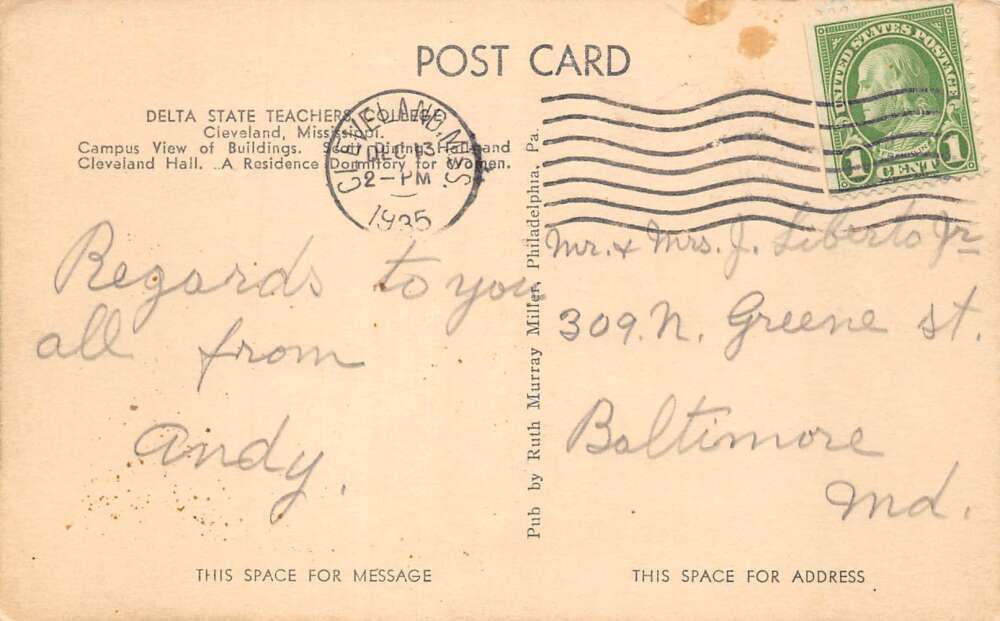 POST CARD
DELTA STATE TEACHERS COLLEGE
Cleveland, Mississippi.
Campus View of Buildings. Dining Hall and
Cleveland Hall. .. A Residence Dormitory for Women.
CLEVELAND, MISS.
DEC 13
2-PM
1935
UNITED STATES POSTAGE
FRANKLIN
1 CENT 1
Regards to you
all from
Andy.
Pub by Ruth Murray Miller, Philadelphia, Pa.
Mr. + Mrs. J. Liberto Jr
309. N. Greene St.
Baltimore
Md.
THIS SPACE FOR MESSAGE
THIS SPACE FOR ADDRESS